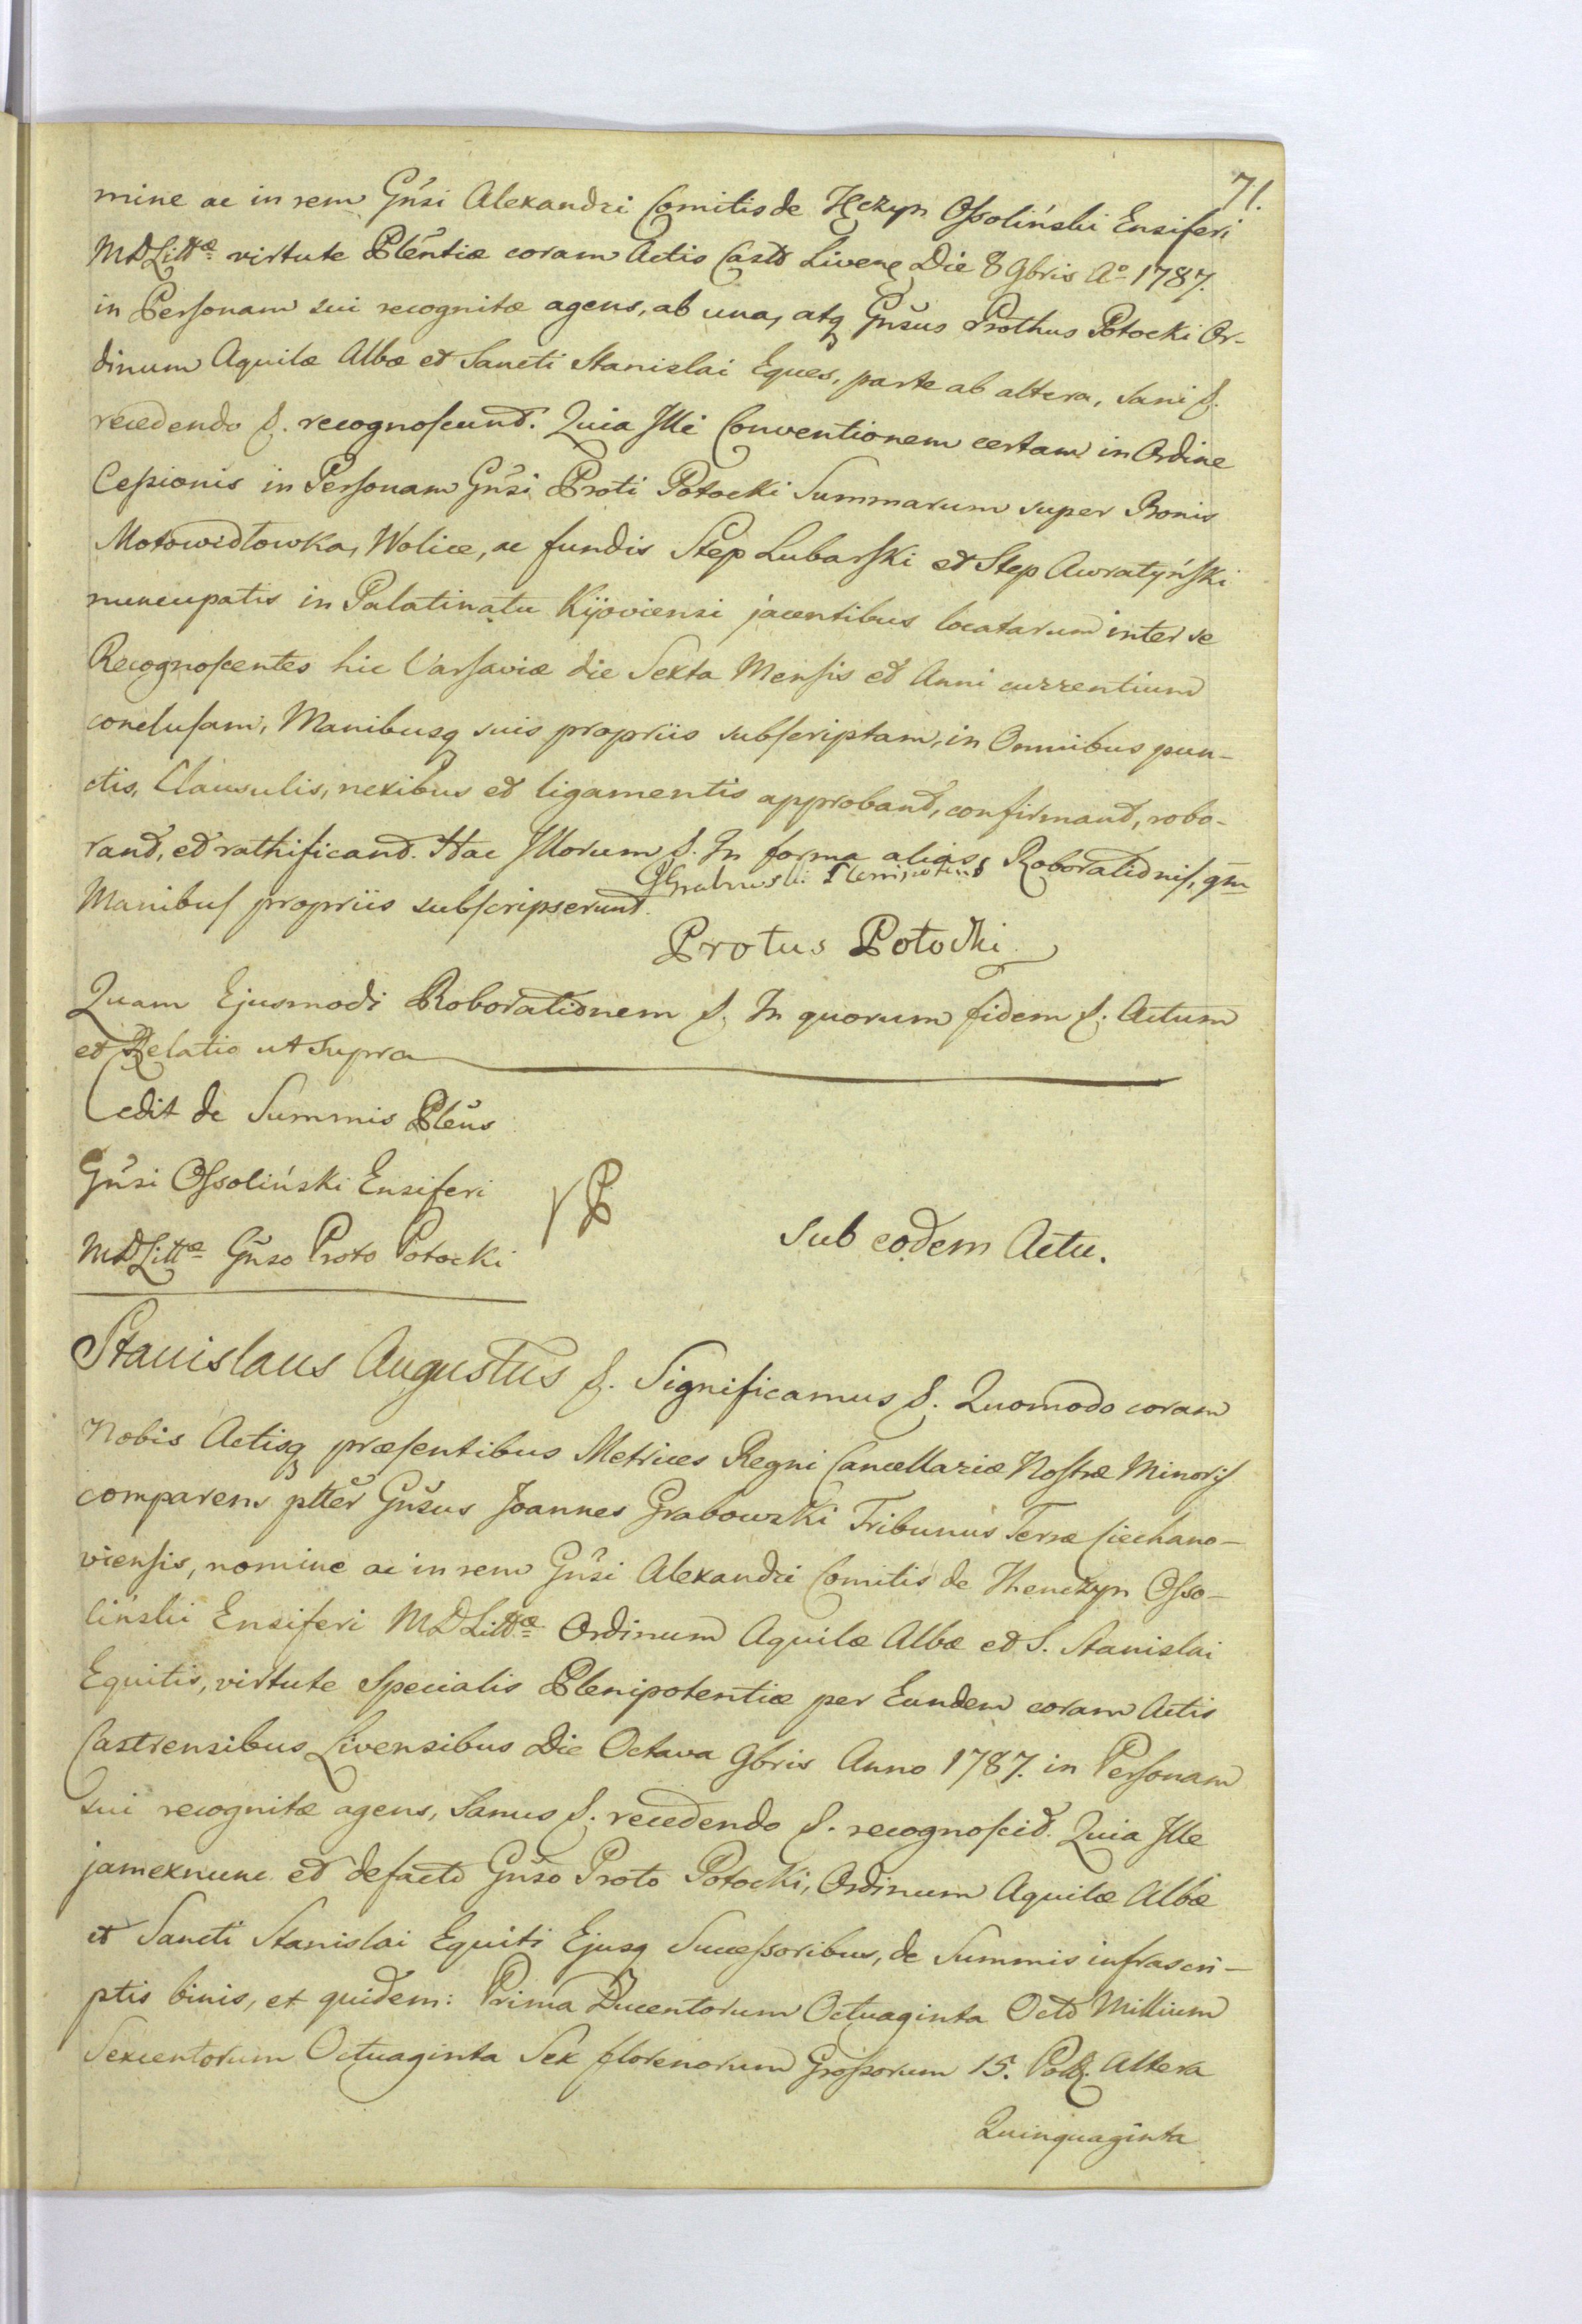 71.
mine ac in rem Gn̄si Alexandri Comitis de Tęczyn Ossoliński Ensiferi
MDLittæ virtute Plēntiæ coram Actis Castr Livenę Die 8 9bris Aº 1787.
in Personam sui recognitæ agens, ab una, atq Gn̄sus Prothus Potocki Or-
dinum Aquilæ Albæ et Sancti Stanislai Eques, parte ab altera, Sani &.
recedendo &. recognoscunt. Quia Illi Conventionem certam in Ordine
Cessionis in Personam Gn̄si Proti Potocki Summarum super Bonis
Motowidłowka, Wolice, ac fundis Step Lubarski et Step Awratyński
nuncupatis in Palatinatu Kijoviensi jacentibus locatarum inter se
Recognoscentes hic Varsaviæ die Sexta Mensis et Anni currentium
conclusam, Manibusq suis propriis subscriptam, in Omnibus pun-
ctis, Clausulis, nexibus et ligamentis approband, confirmand, robo-
rand, et rathificand. Hac Illorum &. In forma alias Roborationis, qm̄
Manibus propriis subscripserunt. JGrabowski Plenipotens
Protus Potocki
Quam Ejusmodi Roborationem &. In quorum fidem &. Actum
et Relatio ut supra
Cedit de Summis Plēns
Gn̄si Ossoliński Ensiferi
MDLittæ Gn̄so Proto Potocki
Sub eodem Actu.
Stanislaus Augustus &. Significamus &. Quomodo coram
Nobis Actisq præsentibus Metrices Regni Cancellariæ Nostræ Minoris
comparens pltēr Gn̄sus Joannes Grabowski Tribunus Terræ Ciechano-
viensis, nomine ac in rem Gn̄si Alexandri Comitis de Thenczyn Osso-
liński Ensiferi MDLittæ Ordinum Aquilæ Albæ et S. Stanislai
Equitis, virtute Specialis Plenipotentiæ per Eundem coram Actis
Castrensibus Livensibus Die Octava 9bris Anno 1787. in Personam
sui recognitæ agens, Sanus &. recedendo &. recognoscit. Quia Ille
jamexnunc et defacto Gn̄so Proto Potocki, Ordinum Aquilæ Albæ
et Sancti Stanislai Equiti Ejusq Successoribus, de Summis infrascri-
ptis binis, et quidem: Prima Ducentorum Octuaginta Octo Millium
Sexcentorum Octuaginta Sex florenorum Grossorum 15. Polł. Altera
Quinquaginta